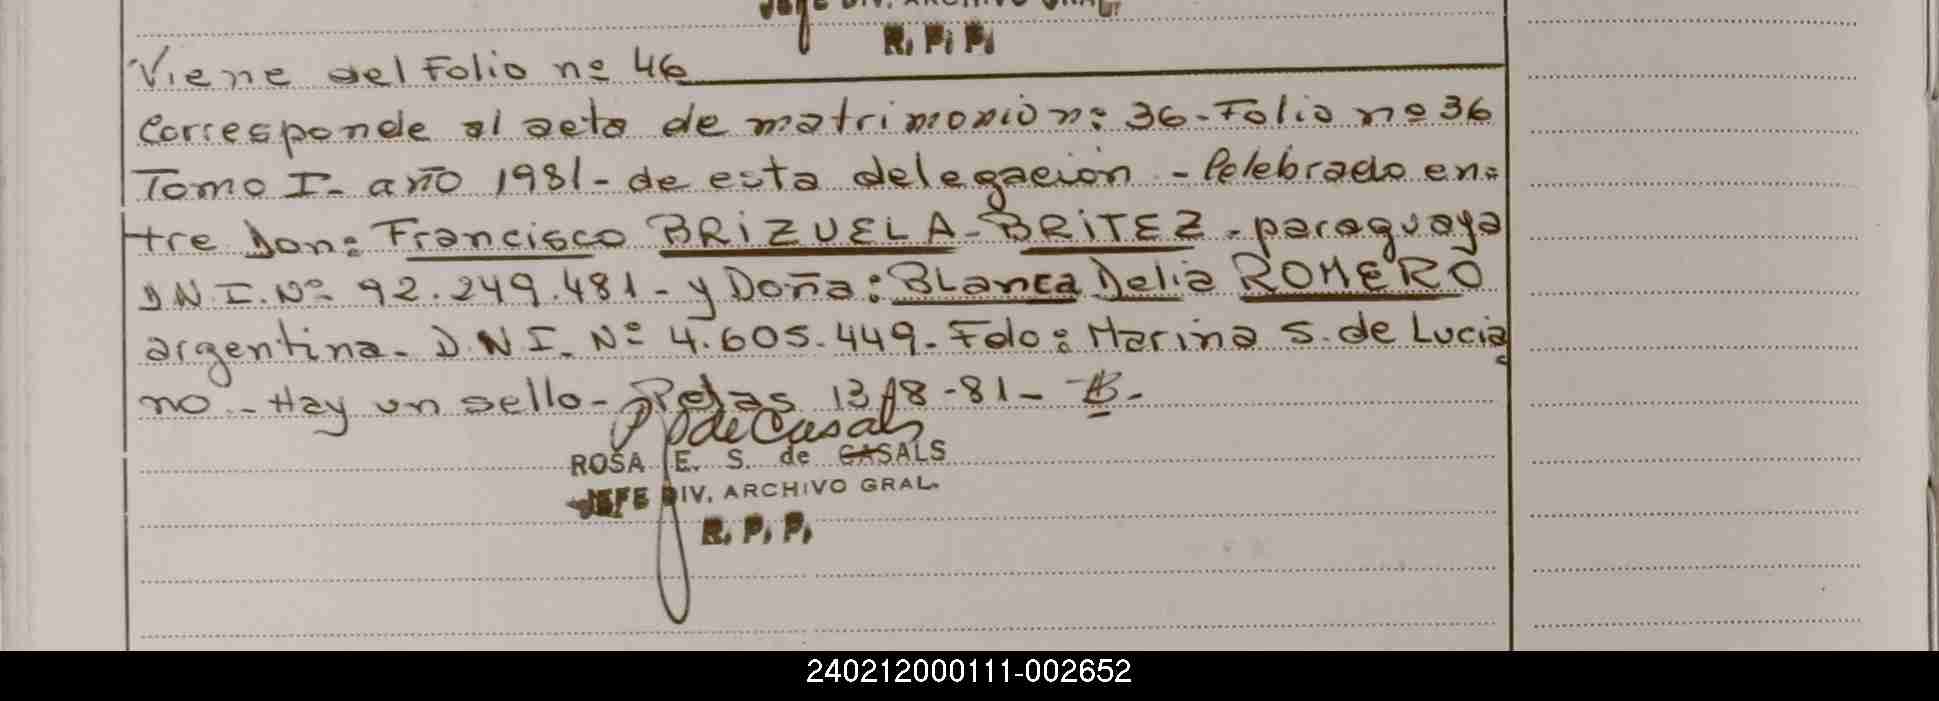 JEFE DIV. ARCHIVO GRAL.
R. P. P.
Viene del Folio nº 46
Corresponde al acta de matrimonio n: 36-Folio nº 36
Tomo I- año 1981- de esta delegación - Celebrado en=
tre Don: Francisco BRIZUELA-BRITEZ - paraguaya
D N. I. Nº 92.249.481 - y Doña: BLanca Delia ROMERO
argentina. D. N I. Nº 4.605.449. Fdo: Marina S. de Lucia
no - Hay un sello - 13/8-81-
de Casals
ROSA E. S. de CASALS
JEFE DIV. ARCHIVO GRAL.
R. P. P.
240212000111-002652